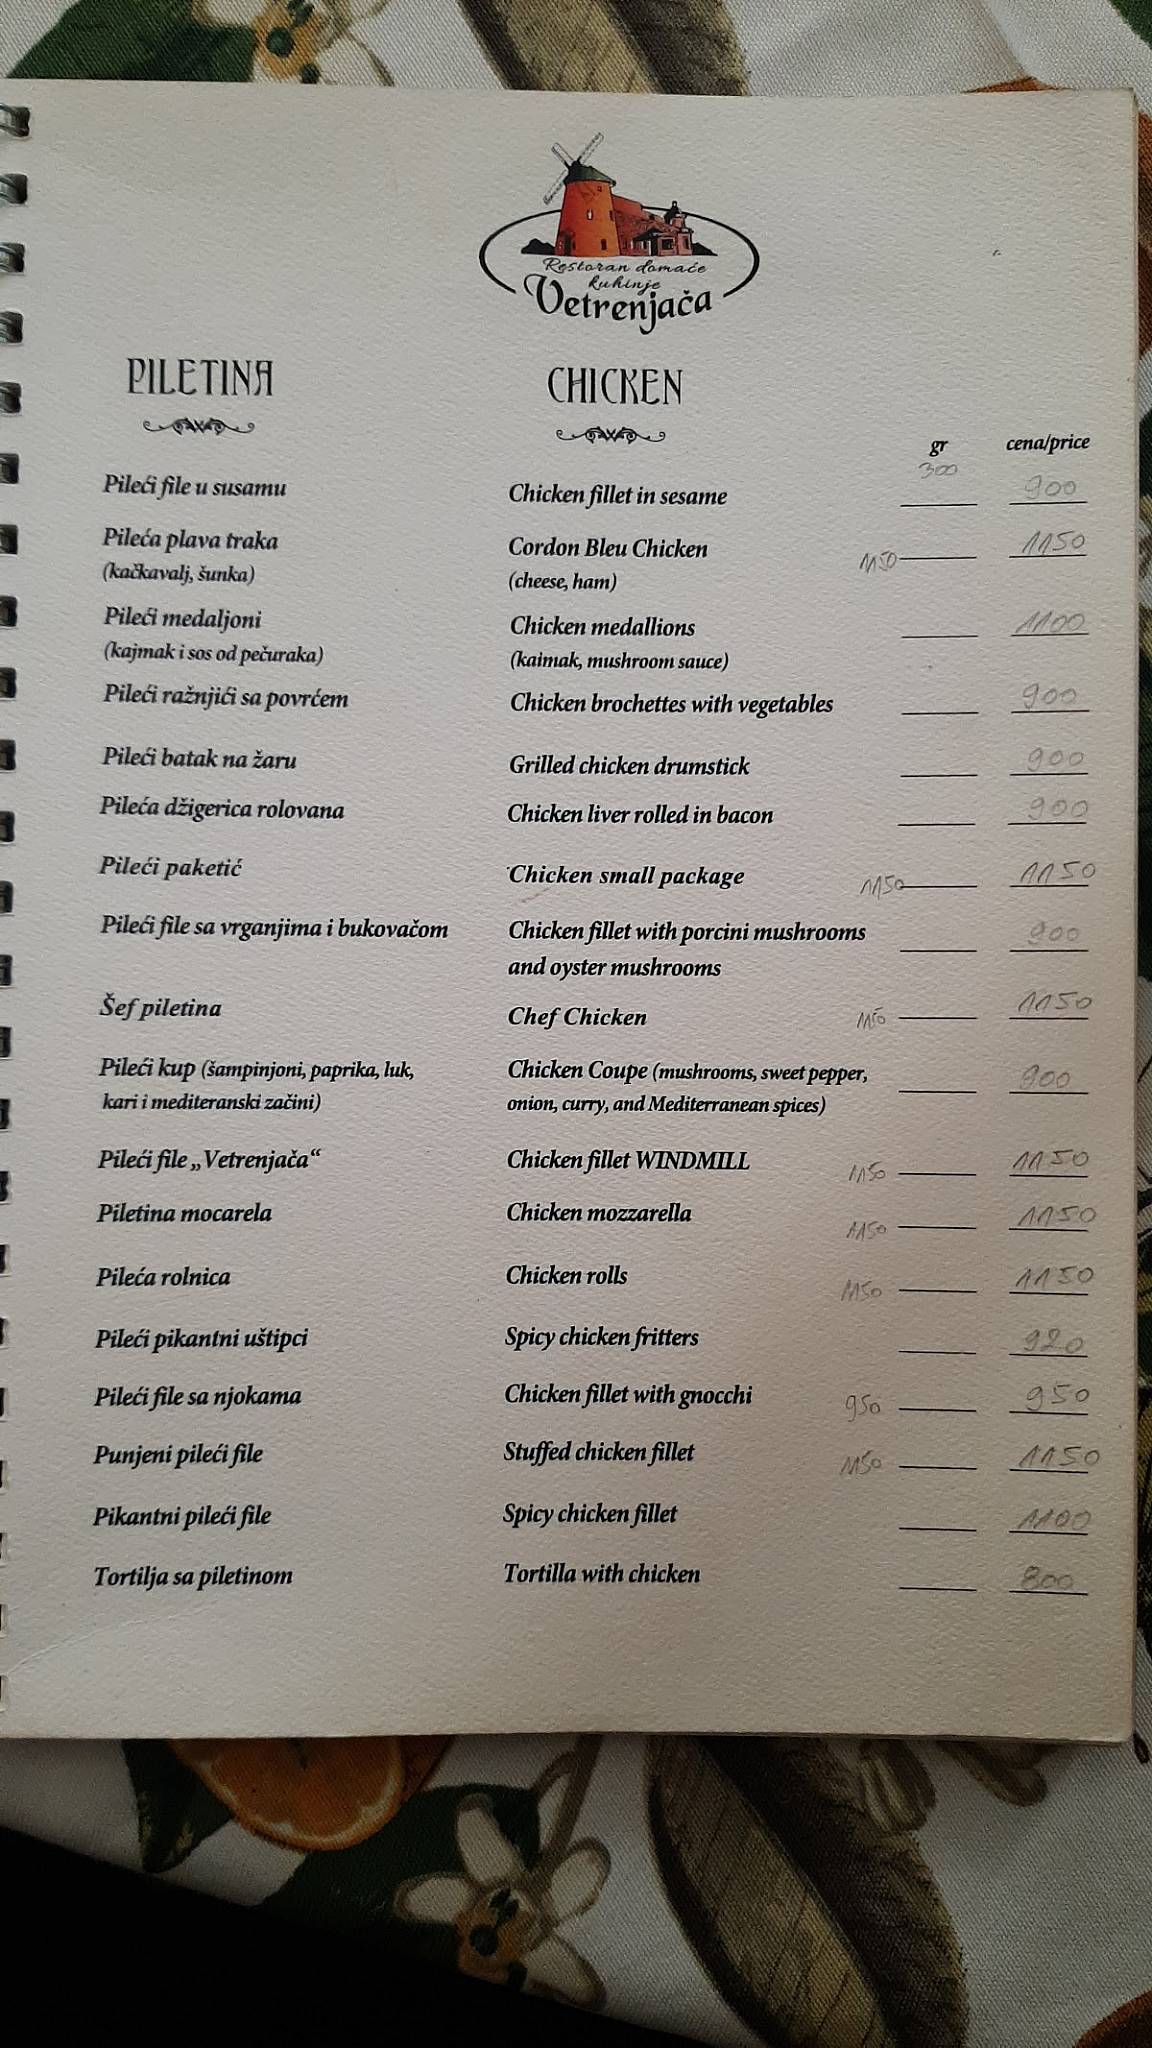 Restoran domaće
kuhinje
Vetrenjača
PILETINA CHICKEN
gr cena/price
300
Pileći file u susamu Chicken fillet in sesame 900
Pileća plava traka Cordon Bleu Chicken 1150 1150
(kačkavalj, šunka) (cheese, ham)
Pileći medaljoni Chicken medallions 1100
(kajmak i sos od pečuraka) (kaimak, mushroom sauce)
Pileći ražnjići sa povrćem Chicken brochettes with vegetables 900
Pileći batak na žaru Grilled chicken drumstick 900
Pileća džigerica rolovana Chicken liver rolled in bacon 900
Pileći paketić Chicken small package 1150 1150
Pileći file sa vrganjima i bukovačom Chicken fillet with porcini mushrooms 900
and oyster mushrooms
Šef piletina Chef Chicken 1150 1150
Pileći kup (šampinjoni, paprika, luk, Chicken Coupe (mushrooms, sweet pepper, 900
kari i mediteranski začini) onion, curry, and Mediterranean spices)
Pileći file „Vetrenjača“ Chicken fillet WINDMILL 1150 1150
Piletina mocarela Chicken mozzarella 1150 1150
Pileća rolnica Chicken rolls 1150 1150
Pileći pikantni uštipci Spicy chicken fritters 920
Pileći file sa njokama Chicken fillet with gnocchi 950 950
Punjeni pileći file Stuffed chicken fillet 1150 1150
Pikantni pileći file Spicy chicken fillet 1100
Tortilja sa piletinom Tortilla with chicken 800